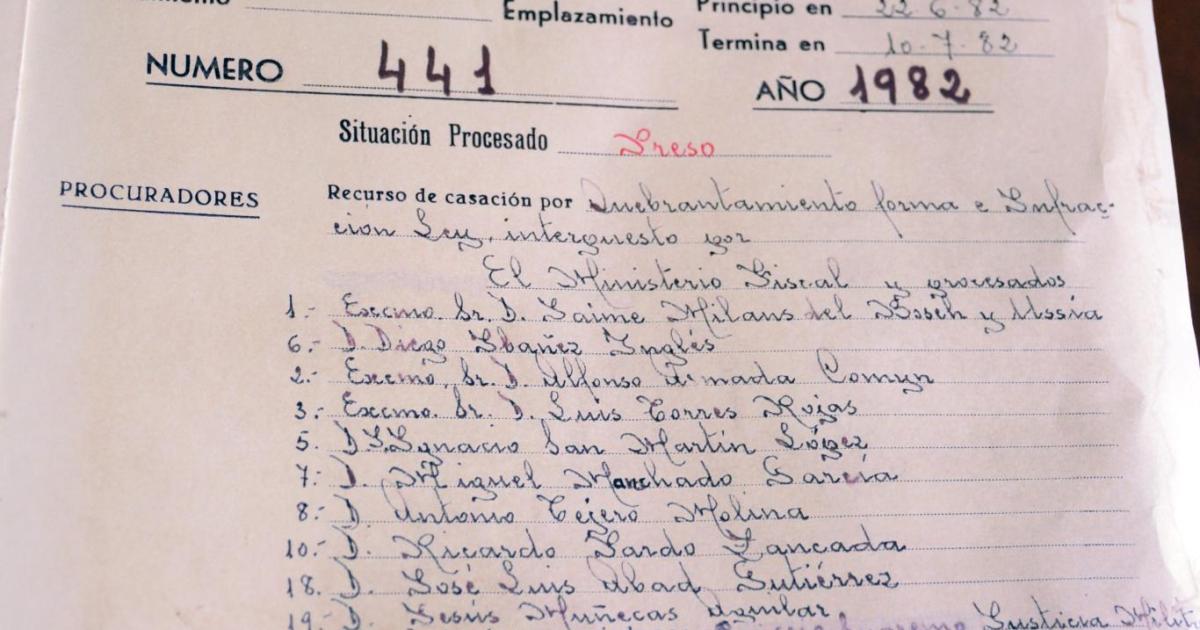 Emplazamiento
Principio en 22-6-82
Termina en 10-7-82
NUMERO 441
AÑO 1982
Situación Procesado Preso
PROCURADORES
Recurso de casación por Quebrantamiento forma e Infrac-
cion Ley, interpuesto por
El Ministerio Fiscal y procesados
1.- Excmo. Sr. D. Jaime Milans del Bosch y Ussia
6.- D. Diego Ibañez Inglés
2.- Excmo. Sr. D. Alfonso Armada Comyn
3.- Excmo. Sr. D. Luis Torres Rojas
5. D. Ignacio San Martín López
7.- D. Miguel Manchado García
8.- D. Antonio Tejero Molina
10.- D. Ricardo Pardo Zancada
18. D. José Luis Abad Gutiérrez
19.- D. Jesús Muñecas Aguilar,
Justicia Milit